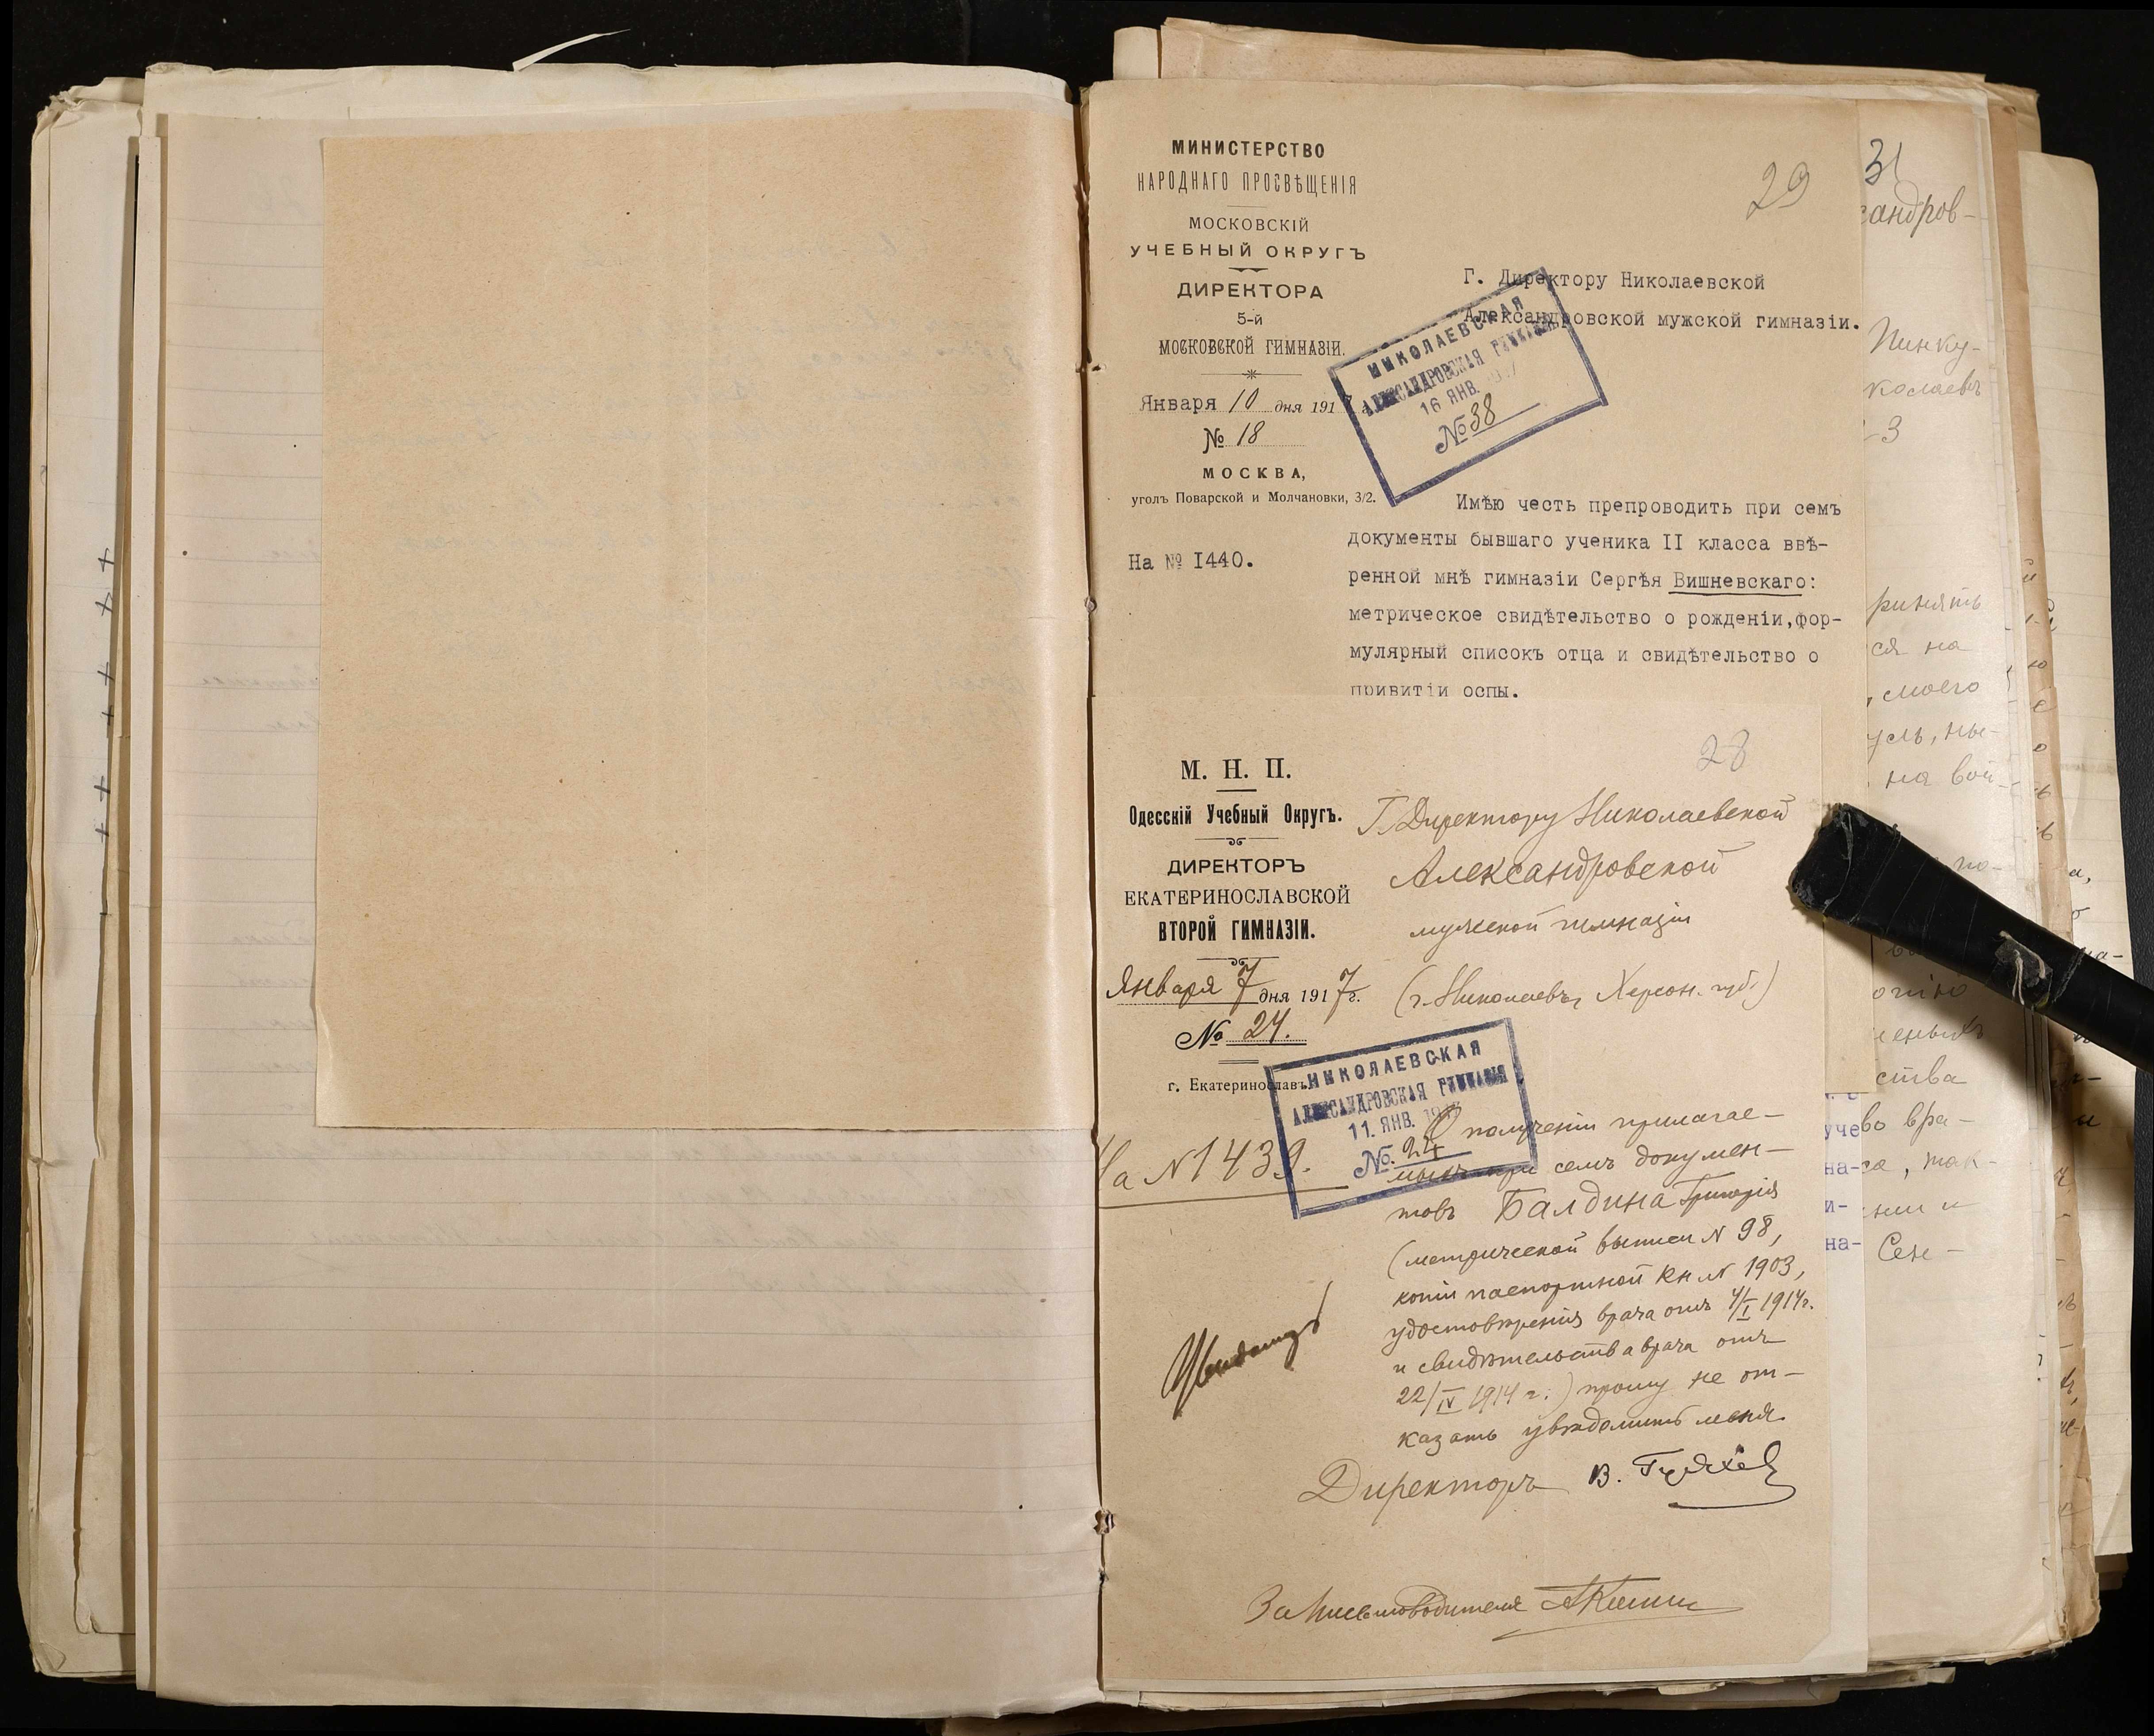 МИНИСТЕРСТВО
НАРОДНАГО ПРОСВѢЩЕНІЯ
МОСКОВСКІЙ
УЧЕБНЫЙ ОКРУГЪ
ДИРЕКТОРА
5-й
МОСКОВСКОЙ ГИМНАЗІИ.
Января 10 дня 191
№ 18
МОСКВА,
уголъ Поварской и Молчановки, 3/2.
На № I440.
29
Г. Директору Николаевской
Александровской мужской гимназіи.
НИКОЛАЕВСКАЯ
АЛЕКСАНДРОВСКАЯ ГИМНАЗІЯ
16 ЯНВ. 1917
№ 38
Имѣю честь препроводить при семъ
документы бывшаго ученика II класса ввѣ-
ренной мнѣ гимназіи Сергѣя Вишневскаго:
метрическое свидѣтельство о рожденіи,фор-
мулярный списокъ отца и свидѣтельство о
привитіи оспы.
28
М. Н. П.
Одесскій Учебный Округъ.
ДИРЕКТОРЪ
ЕКАТЕРИНОСЛАВСКОЙ
ВТОРОЙ ГИМНАЗІИ.
Января 7 дня 1917 г.
№ 24.
г. Екатеринославъ.
На N 1439.
Г. Директору Николаевской
Александровской
мужской гимназіи
(г. Николаевъ, Херсон. губ.)
НИКОЛАЕВСКАЯ
АЛЕКСАНДРОВСКАЯ ГИМНАЗІЯ
11. ЯНВ. 1917
№. 24
О полученіи прилагае-
мыхъ при семъ докумен-
товъ Балдина Григорія
(метрической выписи N 98,
копіи паспортной кн. N 1903,
удостовѣренія врача отъ 4/I 1914 г.
и свидѣтельства врача отъ
22/IV 1914 г.) прошу не от-
казать увѣдомить меня.
Директоръ В.
За Письмоводителя
31
сандров-
Пинку-
колаевъ
-3
ринять
ся на
, моего
усль, ны-
на вой-
ства
учево вра-
на-са, так-
и-
на- Сен-